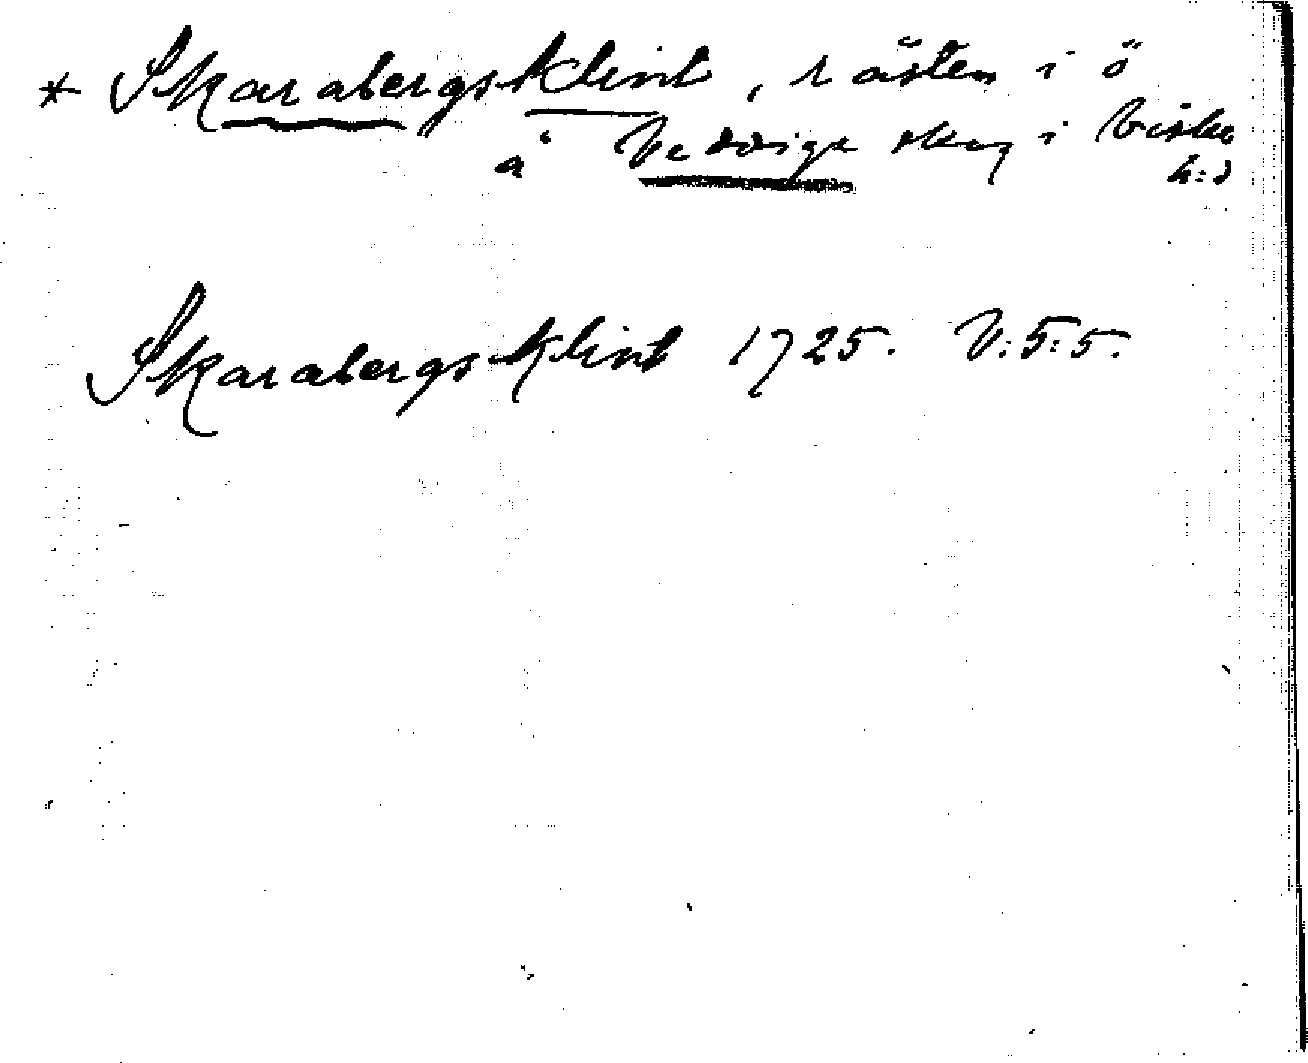 * Skarabergsklint, råsten i ö
å Veddige skog i Viske
h:d
Skarabergs Klint 1725. V:5:5.